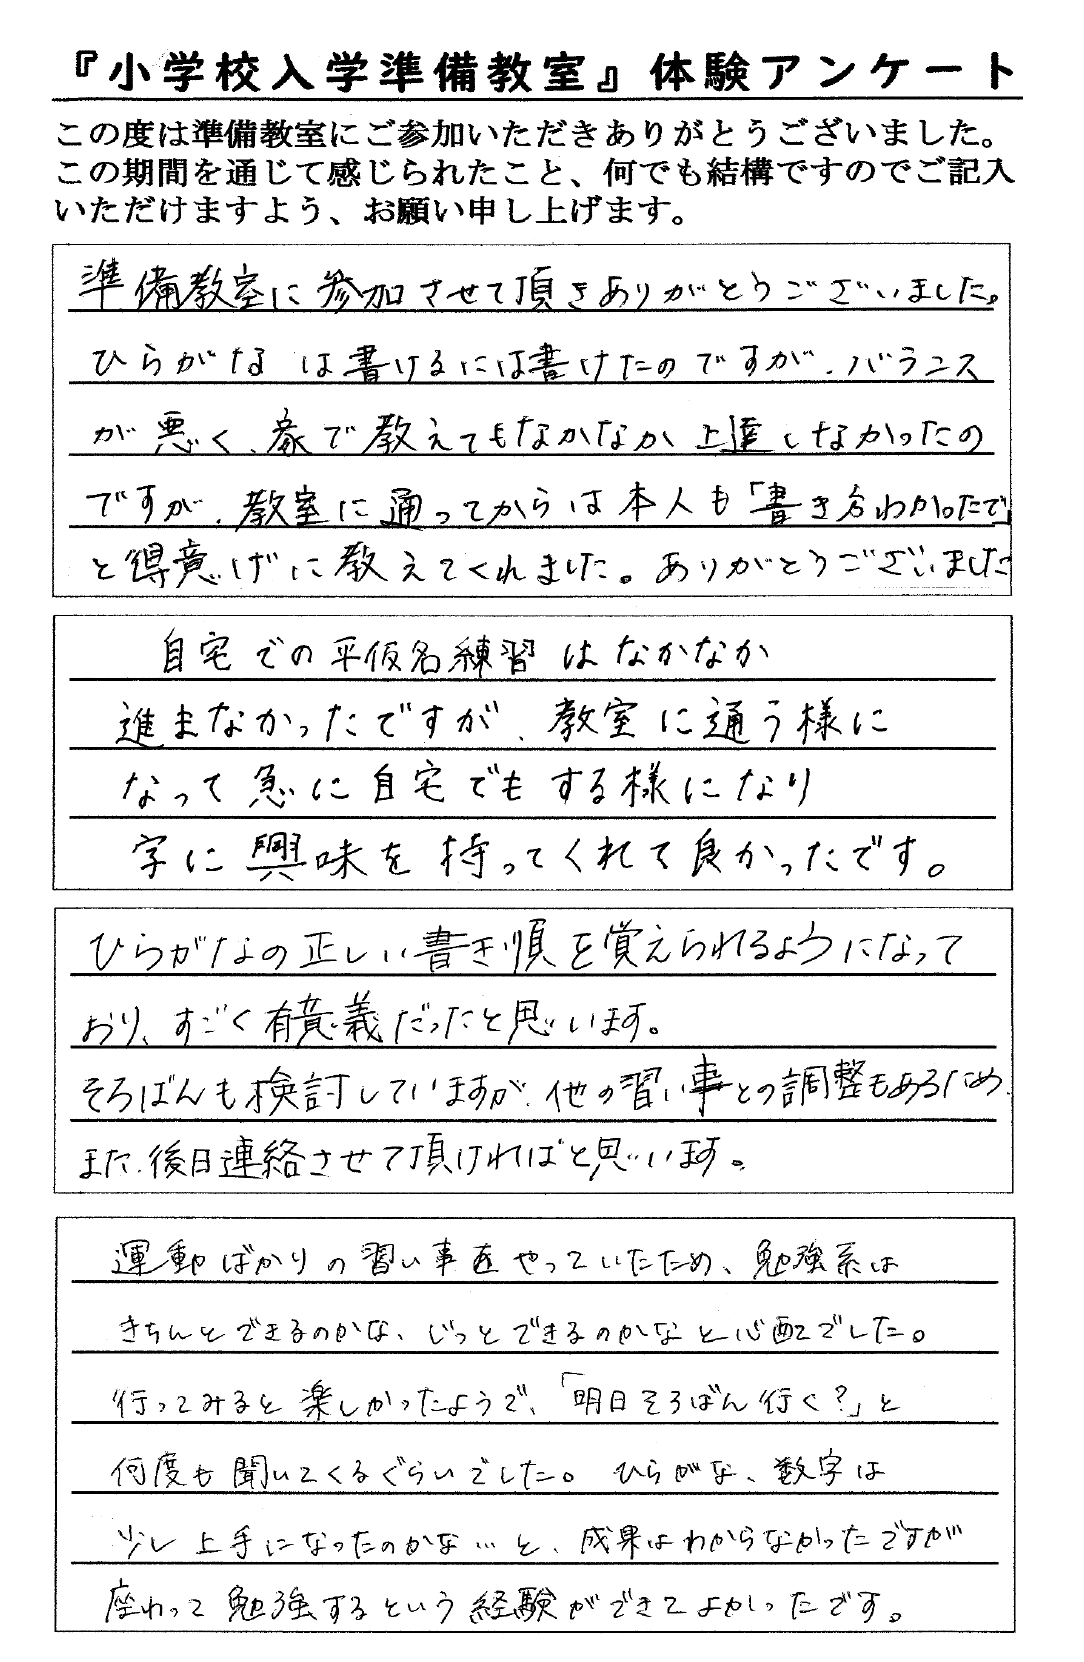 『小学校入学準備教室』体験アンケート
この度は準備教室にご参加いただきありがとうございました。
この期間を通じて感じられたこと、何でも結構ですのでご記入
いただけますよう、お願い申し上げます。
準備教室に参加させて頂きありがとうございました。
ひらがなは書けるには書けたのですが、バランス
が悪く、家で教えてもなかなか上達しなかったの
ですが、教室に通ってからは本人も「書き方わかったで」
と得意げに教えてくれました。ありがとうございました
自宅での平仮名練習はなかなか
進まなかったですが、教室に通う様に
なって急に自宅でもする様になり
字に興味を持ってくれて良かったです。
ひらがなの正しい書き順を覚えられるようになって
おり、すごく有意義だったと思います。
そろばんも検討していますが、他の習い事との調整もあるため、
また、後日連絡させて頂ければと思います。
運動ばかりの習い事をやっていたため、勉強系は
きちんとできるのかな、じっとできるのかなと心配でした。
行ってみると楽しかったようで、「明日そろばん行く?」と
何度も聞いてくるぐらいでした。ひらがな、数字は
少し上手になったのかな…と、成果はわからなかったですが
座わって勉強するという経験ができてよかったです。